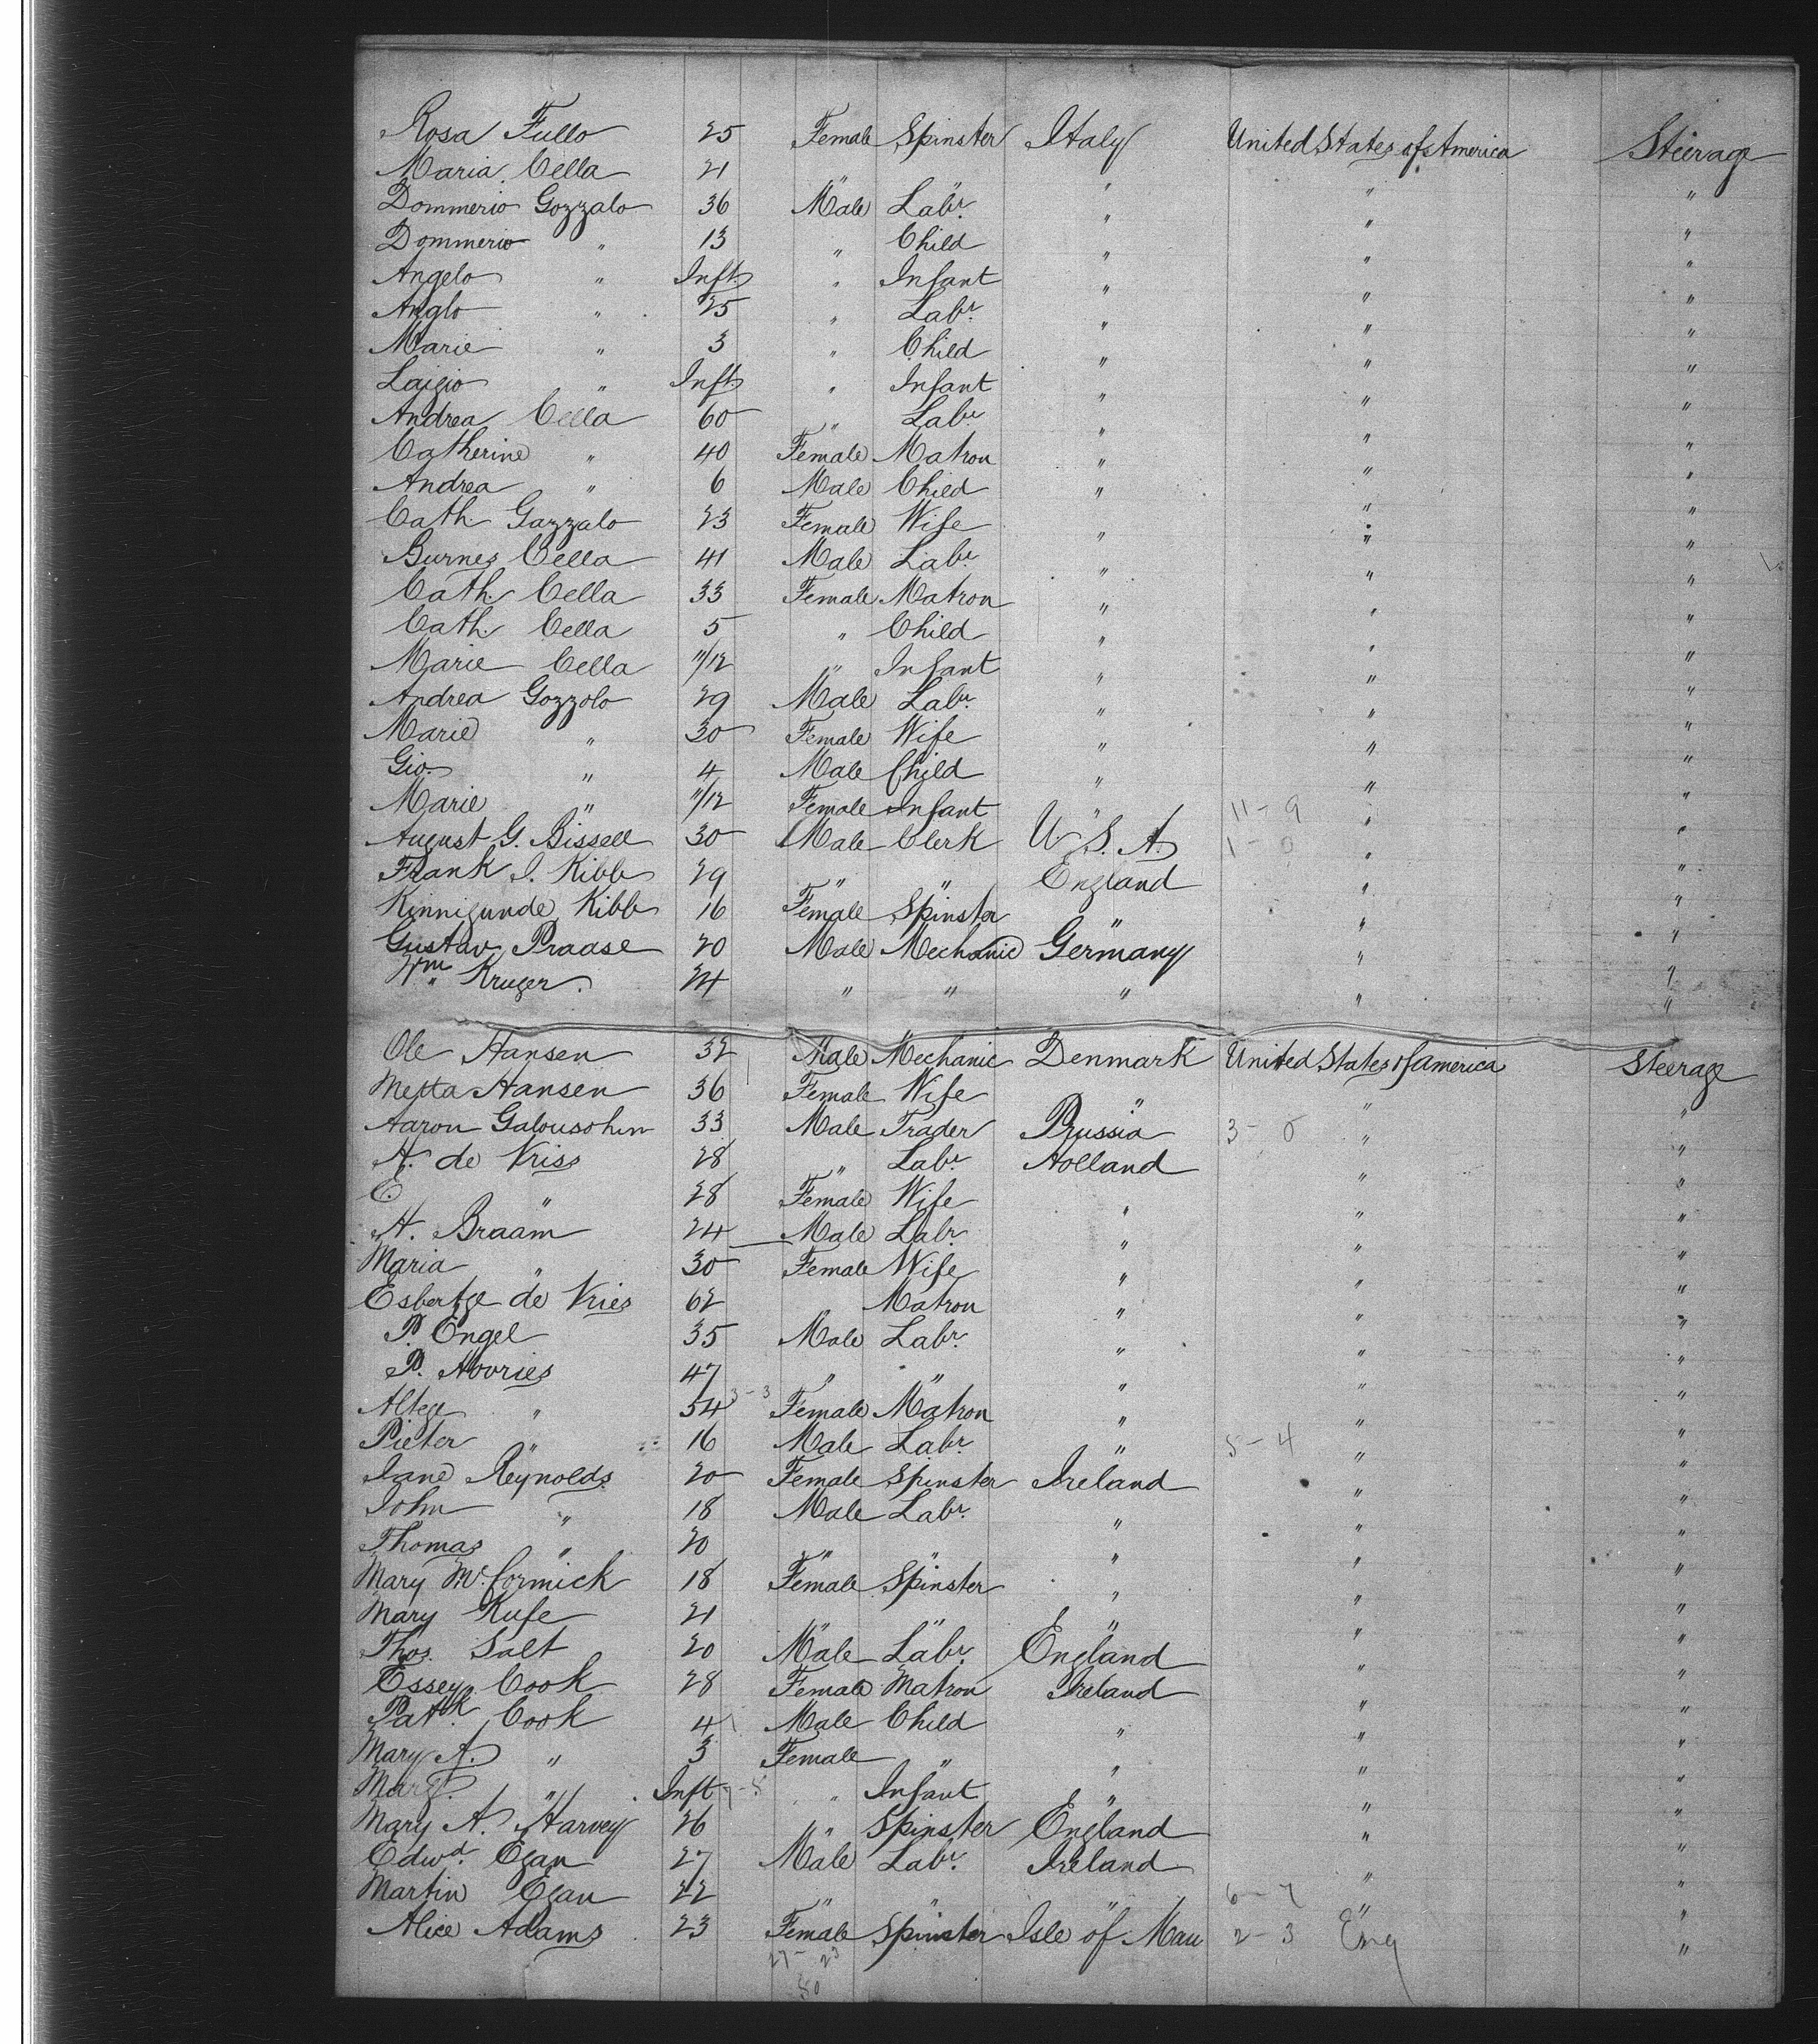 Rosa Fullo 25 Female Spinster Italy United States of America Steerage
Maria Cella 21 " " " " "
Dommerio Gozzalo 36 Male Labr. " " "
Dommerio " 13 " Child " " "
Angelo " Inft. " Infant " " "
Anglo " 25 " Labr. " " "
Marie " 3 " Child " " "
Laigio " Inft. " Infant " " "
Andrea Cella 60 " Labr. " " "
Catherine " 40 Female Matron " " "
Andrea " 6 Male Child " " "
Cath. Gazzalo 23 Female Wife " " "
Burnes Cella 41 Male Labr. " " "
Cath. Cella 33 Female Matron " " "
Cath. Cella 5 " Child " " "
Marie Cella 11/12 " Infant " " "
Andrea Gozzolo 29 Male Labr. " " "
Marie " 30 Female Wife " " "
Gio. " 4 Male Child " " "
Marie " 11/12 Female Infant " 11-9 " "
August G. Bissell 30 Male Clerk U. S. A. 1-0 " "
Frank I. Kibb 29 " " England " "
Kinnigunde Kibb 16 Female Spinster " " "
Gustav Praase 20 Male Mechanic Germany " "
Wm. Kruger. 24 " " " " "
Ole Hansen 32 Male Mechanic Denmark United States of America Steerage
Metta Hansen 36 Female Wife " " "
Aaron Galousohm 33 Male Trader Prussia 3-0 " "
H. de Vriss 28 " Labr. Holland " "
E. " 28 Female Wife " " "
H. Braam 24 Male Labr. " " "
Maria " 30 Female Wife " " "
Esbertge de Vries 62 " Matron " " "
P. Engel 35 Male Labr. " " "
P. Hovries 47 " " " " "
Altege " 54 3-3 Female Matron " " "
Pieter " 16 Male Labr. " 5-4 " "
Jane Reynolds 20 Female Spinster Ireland " "
John " 18 Male Labr. " " "
Thomas " 20 " " " " "
Mary McCormick 18 Female Spinster " " "
Mary Kufe 21 " " " " "
Thos. Salt 20 Male Labr. England " "
Essey Cook 28 Female Matron Ireland " "
Patk. Cook 4 Male Child " " "
Mary A. " 3 Female " " " "
Margt. " Inft 7-5 " Infant " " "
Mary A. Harvey 26 " Spinster England " "
Edwd. Egan 27 Male Labr. Ireland " "
Martin Egan 22 " " " 6-7 " "
Alice Adams 23 Female Spinster Isle of Man 2-3 Eng "
27-23
50